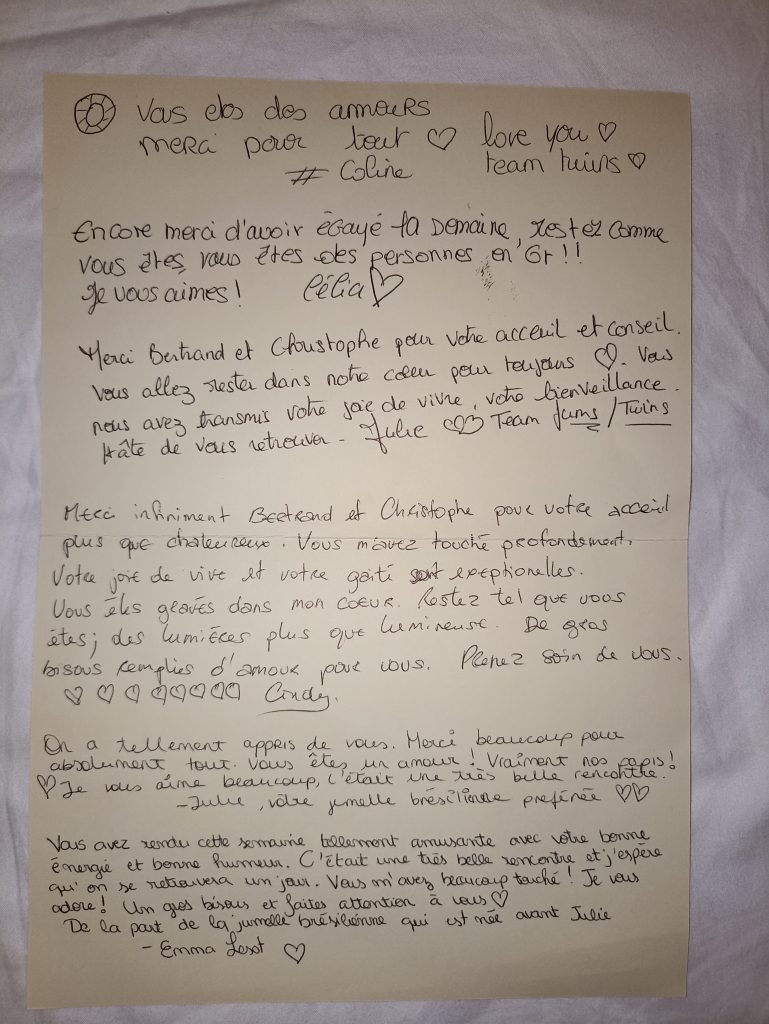 Vous etes des amours
merci pour tout ♡ love you ♡
# Coline team twins ♡
Encore merci d'avoir égayé ta semaine, restez comme
vous êtes, vous êtes des personnes en Or !!
Je vous aimes ! Célia ♡
Merci Bertrand et Choustophe pour votre acceuil et conseil.
Vous allez rester dans notre coeur pour toujours ♡. Vous
nous avez transmis votre joie de vivre, votre bienveillance.
Hâte de vous retrouver - Julie ♡♡ Team Jums / Twins
Merci infiniment Bertrand et Christophe pour votre acceuil
plus que chaleureux. Vous m'avez touché profondement.
Votre joie de vive et votre gaité sont exeptionelles.
Vous êtes gravés dans mon coeur. Restez tel que vous
êtes ; des lumières plus que lumineuse. De gros
bisous remplies d'amour pour vous. Prenez soin de vous.
♡ ♡ ♡ ♡ ♡ ♡ ♡ ♡ Cindy.
On a tellement appris de vous. Merci beaucoup pour
absolument tout. Vous êtes un amour ! Vraiment nos papis !
♡ Je vous aime beaucoup, c'était une très belle rencontre.
- Julie, vôtre jumelle brésilienne preférée ♡♡
Vous avez rendu cette semaine tellement amusante avec votre bonne
énergie et bonne humeur. C'était une très belle rencontre et j'espère
qu'on se retrouvera un jour. Vous m'avez beaucoup touché ! Je vous
adore ! Un gros bisous et faites attention à vous ♡
De la part de la jumelle brésilienne qui est née avant Julie
- Emma ♡